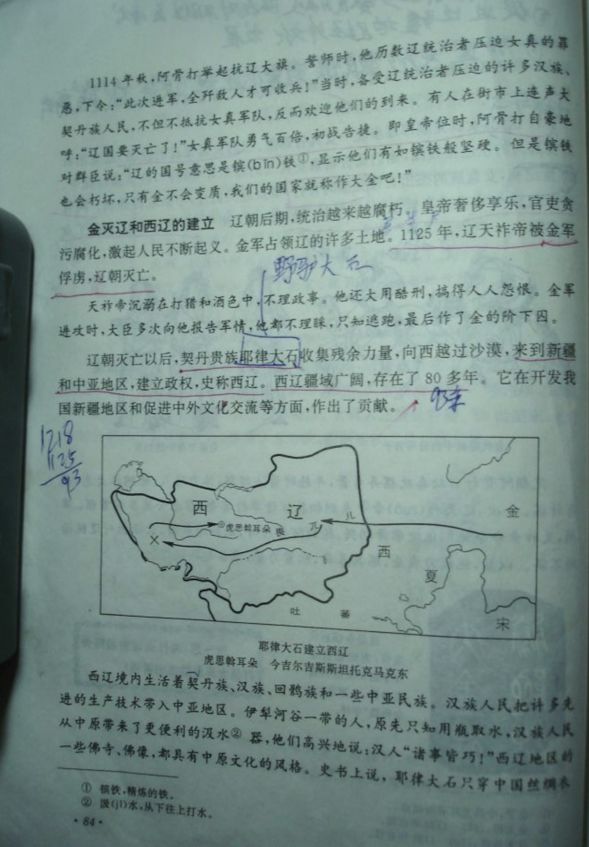 1114年秋,阿骨打举起抗辽大旗。誓师时,他历数辽统治者压迫女真的罪
恶,下令:“此次进军,全歼敌人才可收兵!”当时,备受辽统治者压迫的许多汉族、
契丹族人民,不但不抵抗女真军队,反而欢迎他们的到来。有人在街市上连声大
呼:“辽国要灭亡了!”女真军队勇气百倍,初战告捷。即皇帝位时,阿骨打自豪地
对群臣说:“辽的国号意思是镔(bīn)铁①,显示他们有如镔铁般坚硬。但是镔铁
也会朽坏,只有金不会变质,我们的国家就称作大金吧!”
金灭辽和西辽的建立 辽朝后期,统治越来越腐朽。皇帝奢侈享乐,官吏贪
污腐化,激起人民不断起义。金军占领辽的许多土地。1125年,辽天祚帝被金军
俘虏,辽朝灭亡。
野驴大石
天祚帝沉溺在打猎和酒色中,不理政事。他还大用酷刑,搞得人人怨恨。金军
进攻时,大臣多次向他报告军情,他都不理睬,只知逃跑,最后作了金的阶下囚。
辽朝灭亡以后,契丹贵族耶律大石收集残余力量,向西越过沙漠,来到新疆
和中亚地区,建立政权,史称西辽。西辽疆域广阔,存在了80多年。它在开发我
国新疆地区和促进中外文化交流等方面,作出了贡献。
1218
1125
93
西 辽
虎思斡耳朵
金
西
夏
吐 蕃
宋
耶律大石建立西辽
虎思斡耳朵 今吉尔吉斯斯坦托克马克东
西辽境内生活着契丹族、汉族、回鹘族和一些中亚民族。汉族人民把许多先
进的生产技术带入中亚地区。伊犁河谷一带的人,原先只知用瓶取水,汉族人民
从中原带来了更便利的汲水②器,他们高兴地说:汉人“诸事皆巧!”西辽地区的
一些佛寺、佛像,都具有中原文化的风格。史书上说,耶律大石只穿中国丝绸衣
① 镔铁,精炼的铁。
② 汲(jí)水,从下往上打水。
·84·